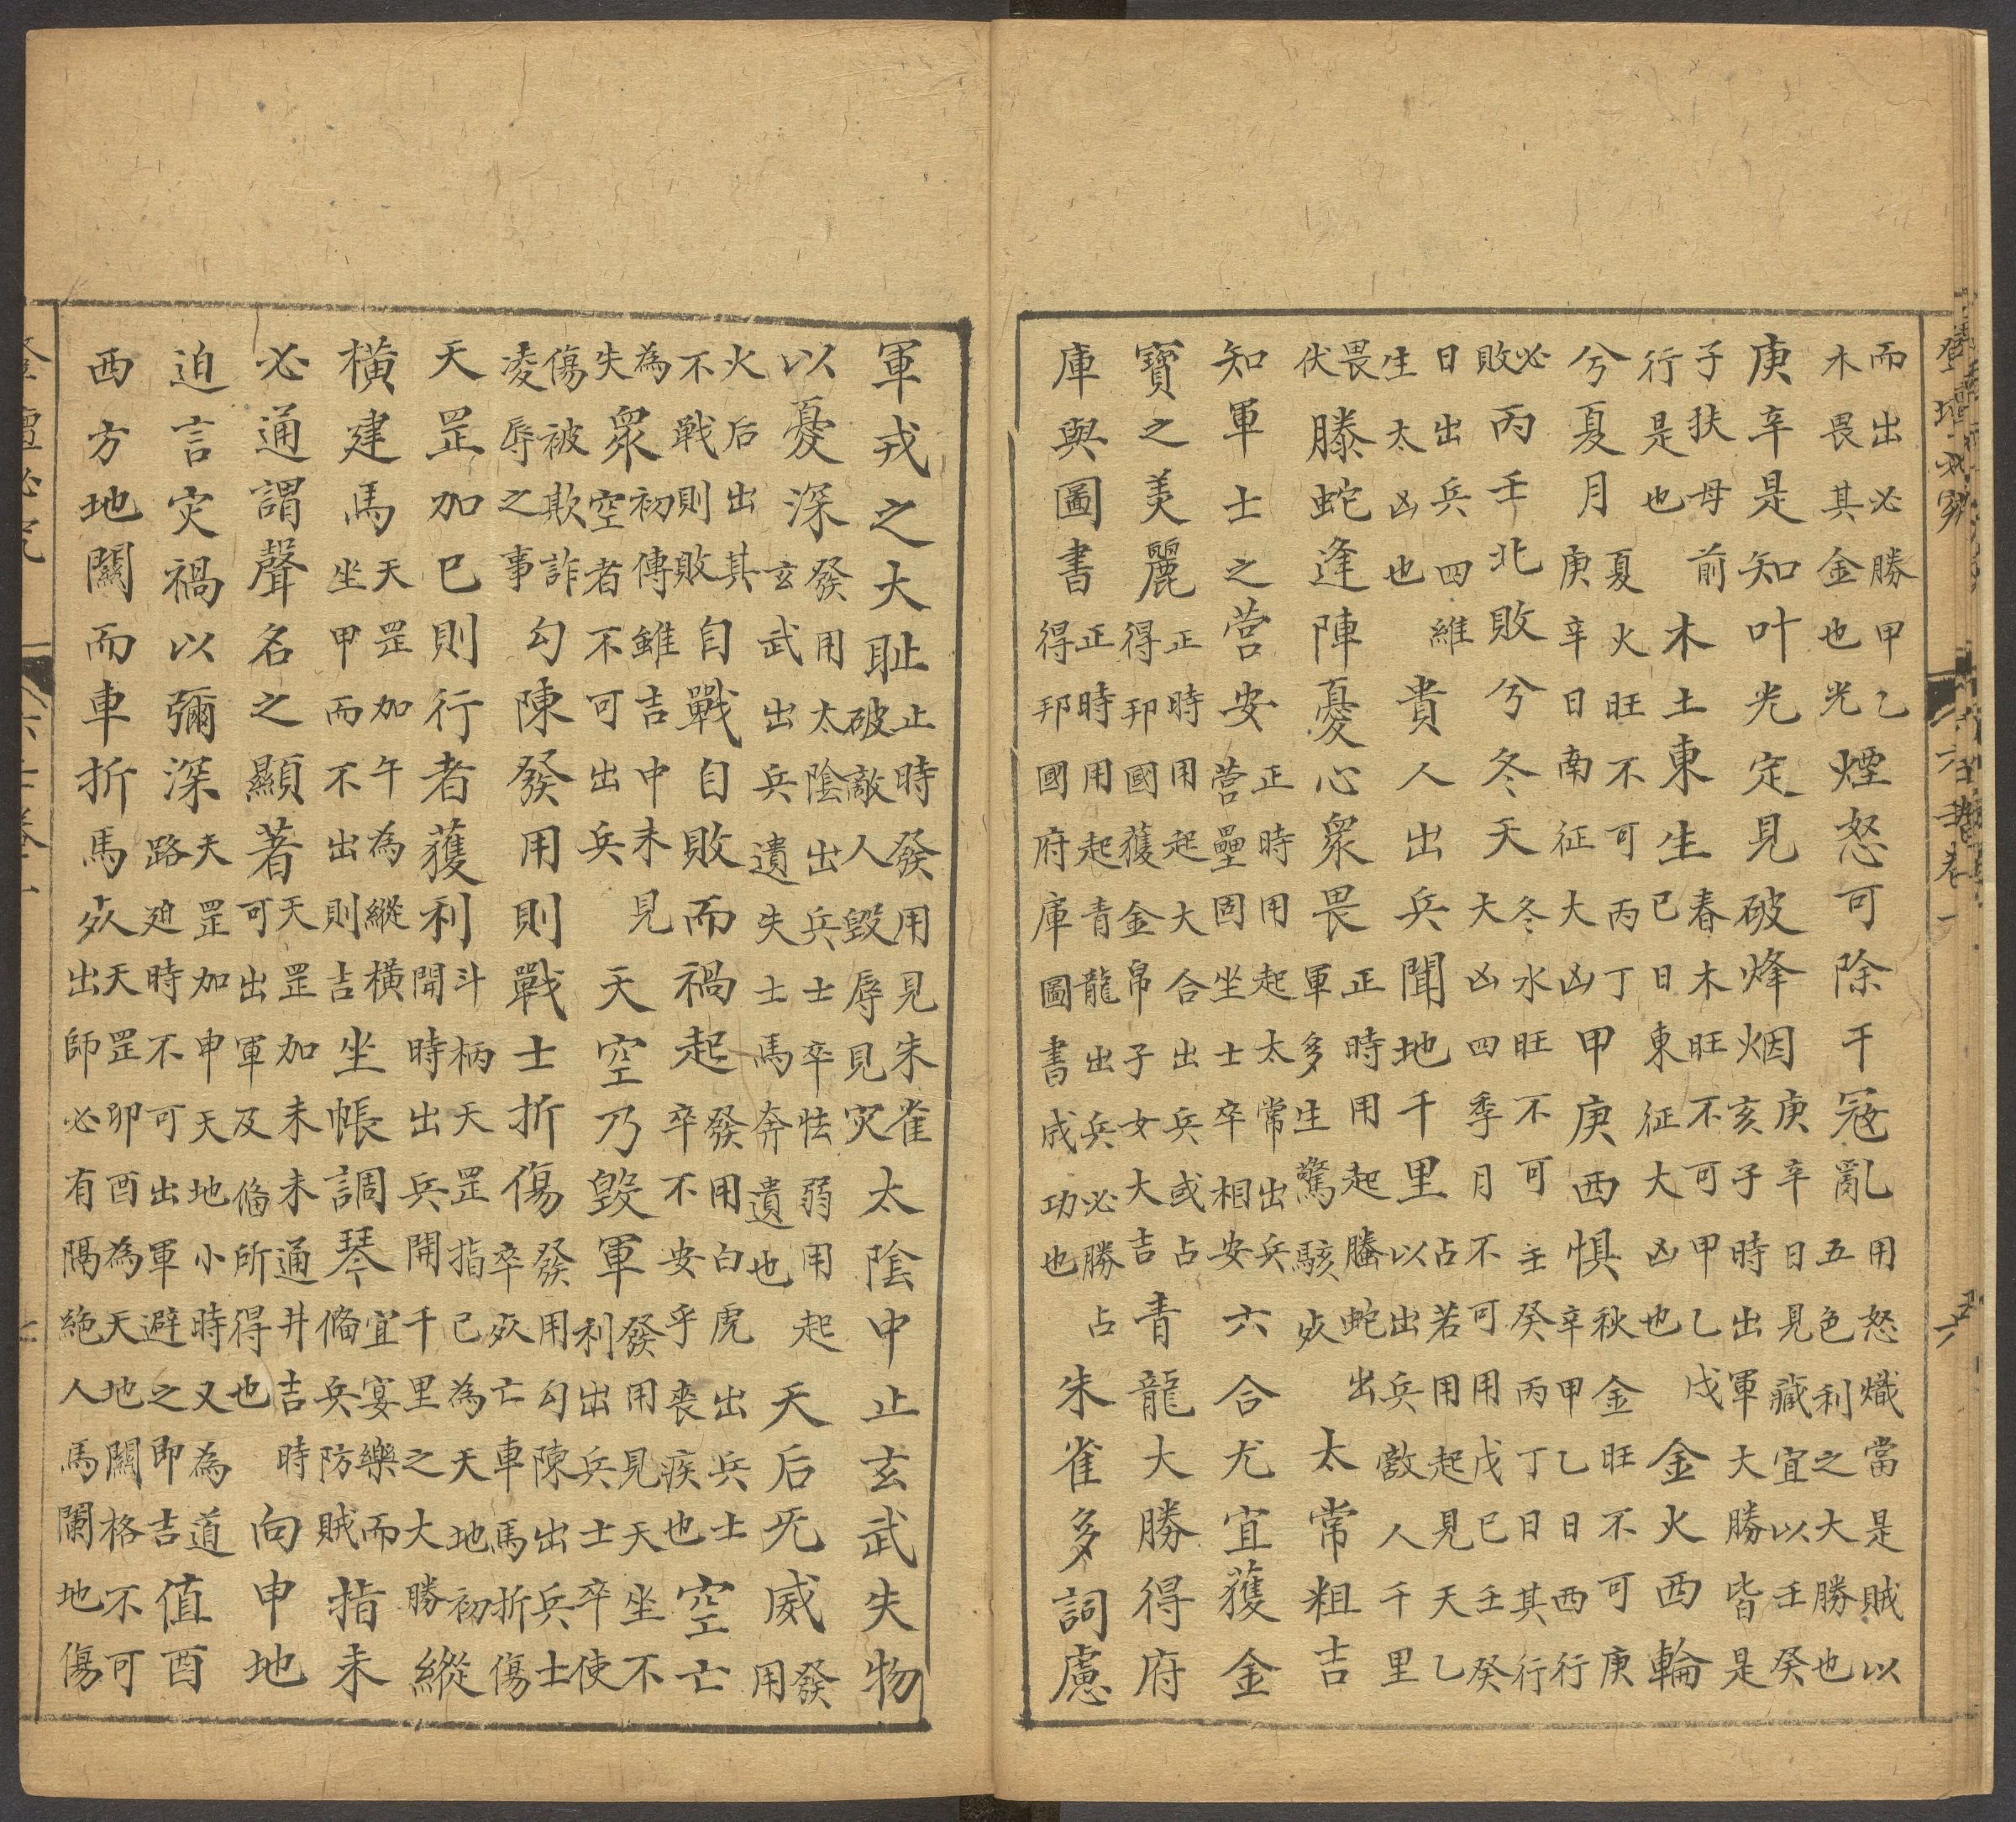 登壇必究
而出必勝甲乙
木畏其金也光
煙怒可除干冦亂
用怒熾當是賊以
五色利之大勝也
庚辛是知叶光定見破烽烟
庚辛日見藏宜以壬癸
亥子時出軍大勝皆是
子扶母前
行是也
木土東生
春木旺不可甲乙戊
巳日東征大凶也
金火西輪
兮夏月
夏火旺不可丙丁
庚辛日南征大凶
甲庚西惧
秋金旺不可庚
辛甲乙日西行
必
敗
丙壬北敗兮冬天
冬水旺不可壬癸丙丁日其行
大凶四季月不可用戊己壬癸
日出兵四維
生太凶也
貴人出兵聞地千里
占若用起見天乙
以出兵敵人千里
畏
伏
螣蛇逢陣憂心衆畏
正時用起螣蛇出
軍多生驚駭敗
太常粗吉
知軍士之营安
正時用起太常出兵
营壘固坐士卒相安
六合尤宜獲金
寶之美麗
正時用起大合出兵或占
得邦國獲金帛子女大吉
青龍大勝得府
庫與圖書
正時用起青龍出兵必勝占
得邦國府庫圖書成功也
朱雀多詞慮
軍戎之大耻
止時發用見朱雀
破敵人毀辱見灾
太陰中止玄武失物
以憂深
發用太陰出兵士卒怯弱用起
玄武出兵遺失士馬奔遺也
天后旡威
發
用
火后出其
不戰則敗
自戰自敗而禍起
發用白虎出兵士
卒不安乎喪疾也
空亡
為
失
衆
初傳雖吉中末見
空者不可出兵
天空乃毀軍
發用見天坐不
利出兵士卒使
傷被欺詐
凌辱之事
勾陳發用則戰士折傷
發用勾陳出兵士
卒敗亡車馬折傷
天罡加巳則行者獲利
斗柄天罡指巳為天地初
開時出兵開千里之大勝
縱
橫建馬
天罡加午為縱橫
坐甲而不出則吉
坐帳調琴
宜宴樂而
偹兵防賊
指未
必通謂聲名之顯著
天罡加未未通井吉時
可出軍及偹所得也
向申地
迫言灾禍以彌深
天罡加申天地小時又為道
路廹時不可出軍避之即吉
值酉
西方地關而車折馬敗
天罡卯酉為天地關格不可
出師必有隔絶人馬闌地傷